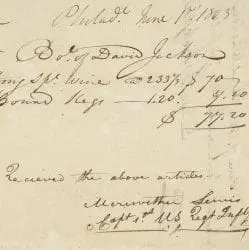 Philada. June 1st 1803
Bot. of David Jackson
Spt. Wine 233⅓ $ 70
Bound Kegs 1.20. 7.20
$ 77.20
Recieved the above articles
Meriwether Lewis
Capt. 1st. U.S. Regt. Infty.